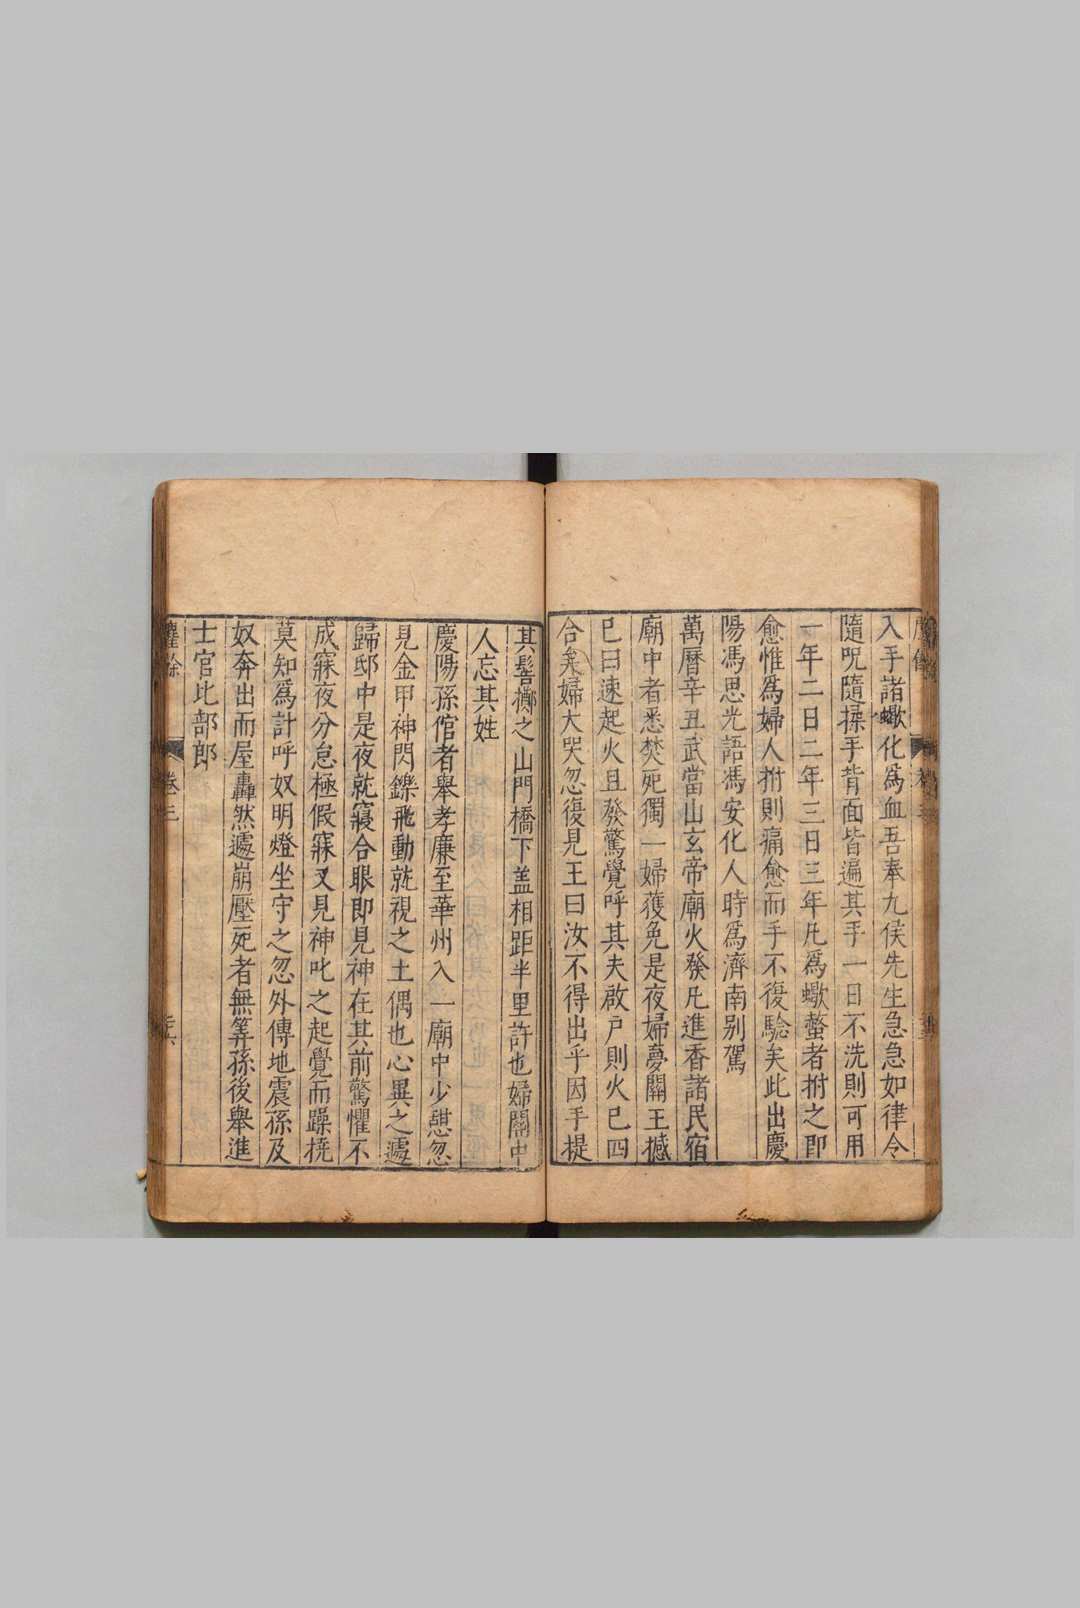 入手諸蠍化為血吾奉九侯先生急急如律令
隨呪隨揉手背面皆遍其手一日不洗則可用
一年二日二年三日三年凡為蠍螫者拊之即
愈惟為婦人拊則痛愈而手不復驗矣此出慶
陽馮思光語馮安化人時為濟南別駕
萬曆辛丑武當山玄帝廟火發凡進香諸民宿
廟中者悉焚死獨一婦獲免是夜婦夢關王撼
己曰速起火且發驚覺呼其夫啟戶則火已四
合矣婦大哭忽復見王曰汝不得出乎因手提
其髻擲之山門橋下盖相距半里許也婦關中
人忘其姓
慶陽孫倌者舉孝廉至華州入一廟中少憩忽
見金甲神閃鑠飛動就視之土偶也心異之遽
歸邸中是夜就寢合眼即見神在其前驚懼不
成寐夜分怠極假寐又見神叱之起覺而躁撓
莫知為計呼奴明燈坐守之忽外傳地震孫及
奴奔出而屋轟然遽崩壓死者無筭孫後舉進
士官比部郎
卷三